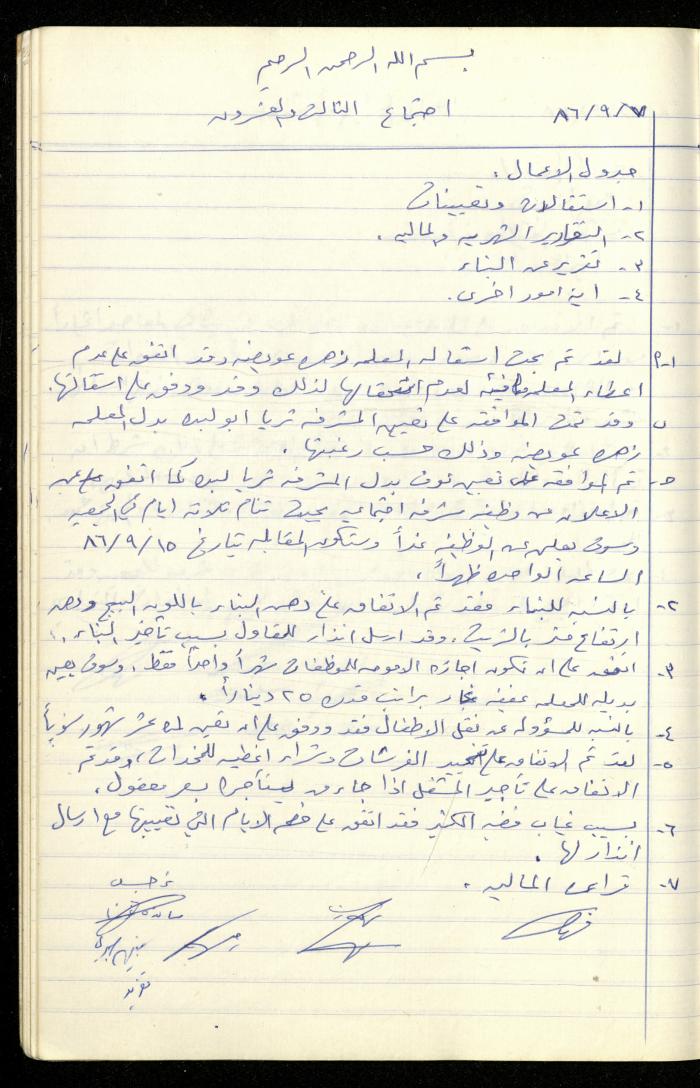 بسم الله الرحمن الرحيم
٨٦/٩/٧ اجتماع الثالث والعشرون
جدول الاعمال :
١- استقالات وتعيينات
٢- التقارير الشهرية والمالية .
٣- تقرير عن البناء
٤- اية امور اخرى .
١-أ لقد تم بحث استقالة المعلمة زهره عويضه وقد اتفق على عدم
اعطاء المعلمة مكافئة لعدم استحقاقها لذلك وقد ووفق على استقالتها .
ب وقد تمت الموافقة على تعيين المشرفة ثريا ابو لبده بدل المعلمة
زهره عويضه وذلك حسب رغبتها .
ج- تم الموافقة على تعيين بدل المشرفة ثريا لبده كما اتفق على
الاعلان عن وظيفة مشرفة اجتماعية بحيث تنام ثلاثة ايام في الجمعية
وسوف يعلن عن الوظيفة غداً وستكون المقابلة بتاريخ ٨٦/٩/١٥
الساعة الواحدة ظهراً .
٢- بالنسبة للبناء فقد تم الاتفاق على دهن البناء باللون البيج ودهن
ارتفاع متر بالزيت . وقد ارسل انذار للمقاول بسبب تأخير البناء .
٣- اتفق على ان تكون اجازة الامومة للموظفات شهراً واحداً فقط . وسوف يعين
بديلة للمعلمة عفيفة براتب قدره ٢٥ ديناراً .
٤- بالنسبة للمسؤولة عن نقل الاطفال فقد ووفق على ان تعين لمدة عشر شهور سنوياً
٥- لقد تم الاتفاق على تنجيد الفرشات وشراء اغطية للمخدات ، وقد تم
الاتفاق على تأجير المشغل اذا جاء من يستأجره بسعر معقول .
٦- بسبب غياب فقد اتفق على خصم الايام التي تغيبتها مع ارسال
انذار لها .
٧- قراءة المالية .